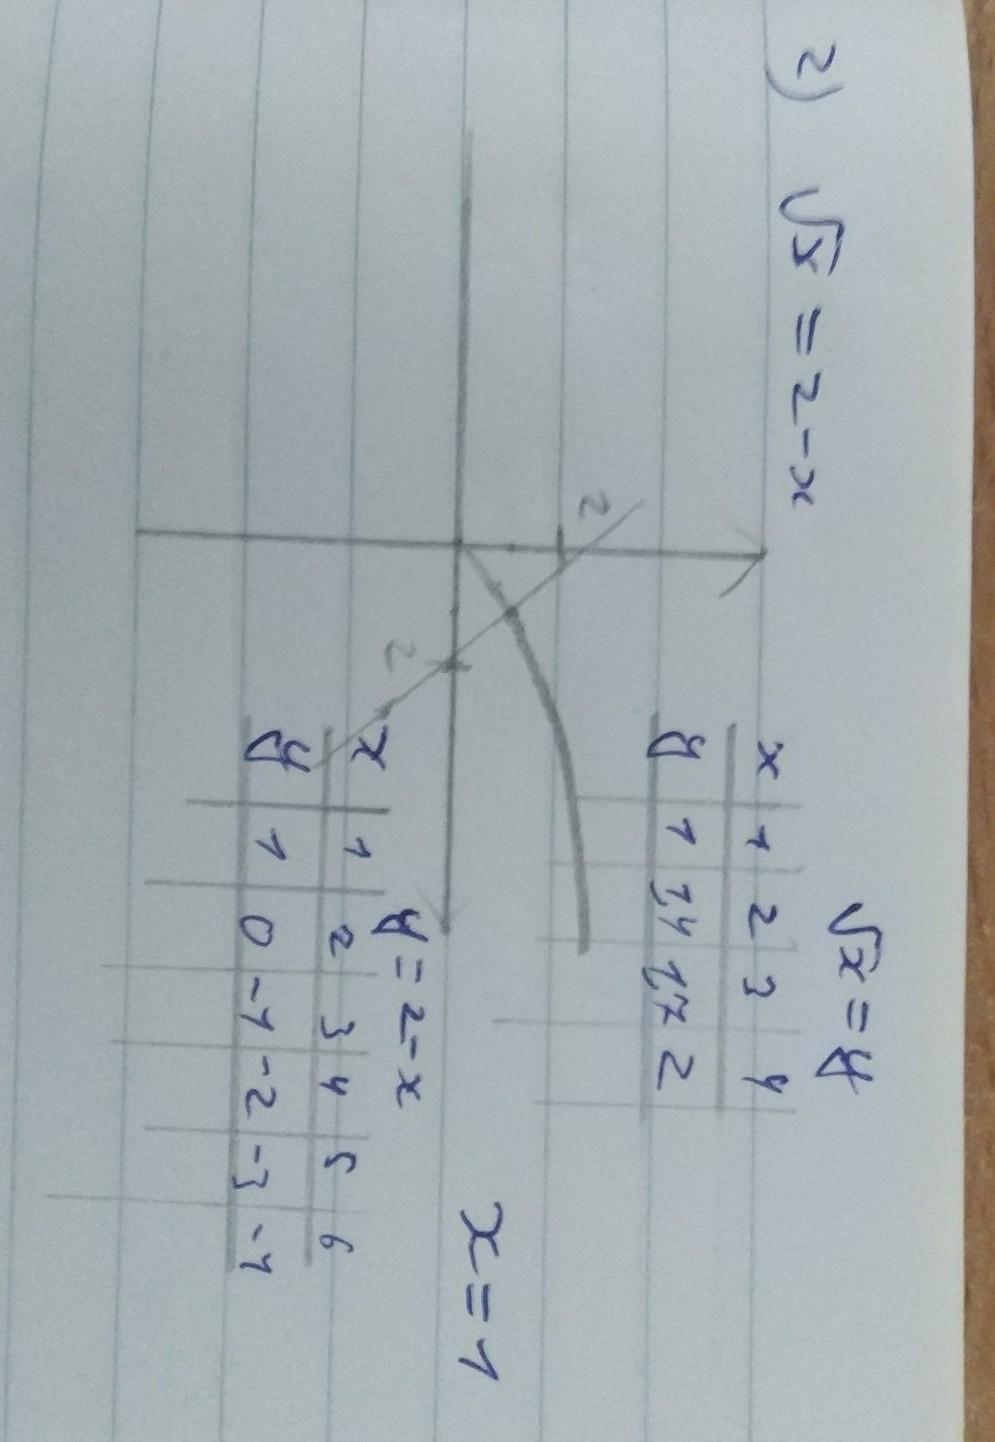 2) √x = 2-x
√x = y
x 1 2 3 4
y 1 1,4 1,7 2
2
2
x = 1
y = 2-x
x 1 2 3 4 5 6
y 1 0 -1 -2 -3 -1